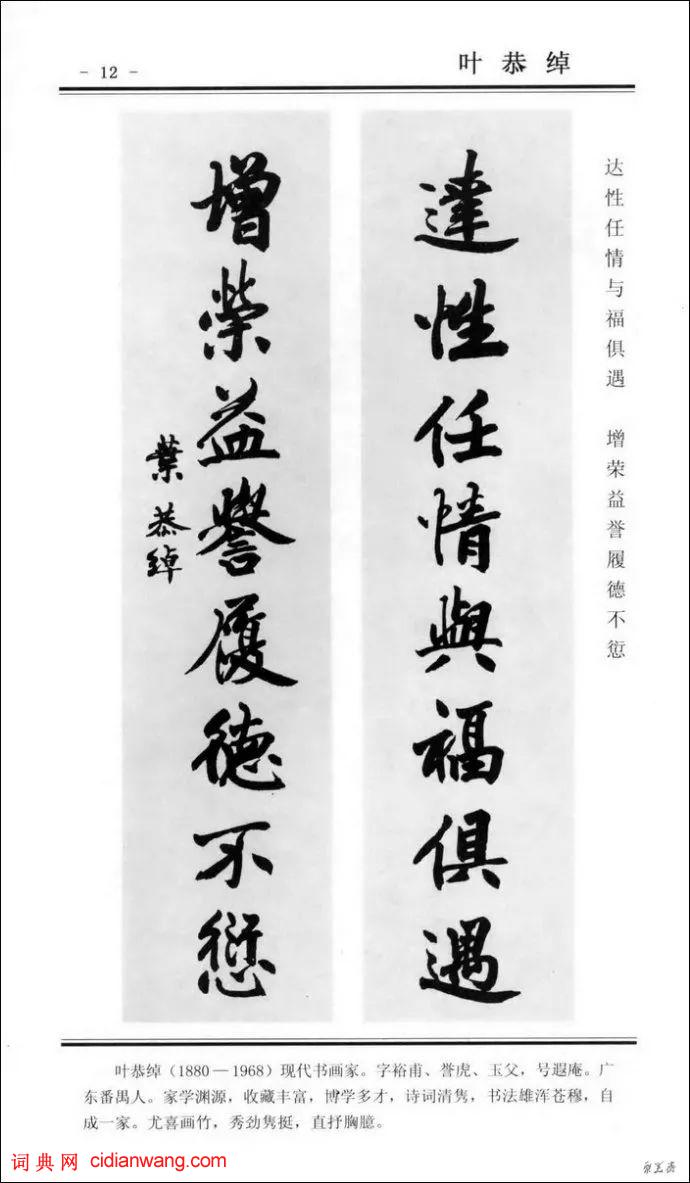 - 12 -
叶恭绰
达性任情与福俱遇 增荣益誉履德不愆
達性任情與福俱遇
增榮益譽履德不愆
葉恭綽
叶恭绰（1880－1968）现代书画家。字裕甫、誉虎、玉父，号遐庵。广
东番禺人。家学渊源，收藏丰富，博学多才，诗词清隽，书法雄浑苍穆，自
成一家。尤喜画竹，秀劲隽挺，直抒胸臆。
词典网 cidianwang.com